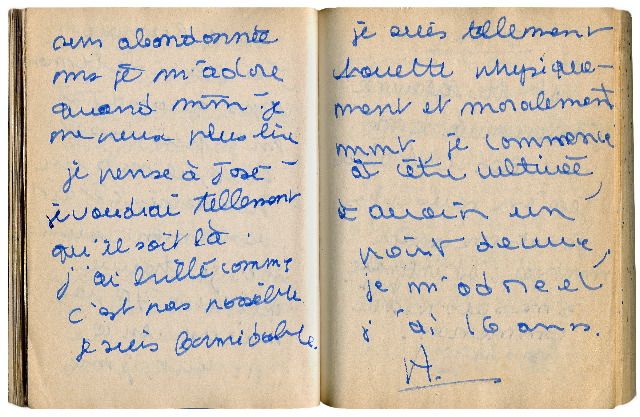 suis abandonnée
ms je m'adore
quand mm. je
ne veux plus lire
je pense à José
je voudrai tellement
qu'il soit là.
j'ai brillé comme
c'est pas possible
je suis formidable.
je suis tellement
chouette physique-
ment et moralement
mmt, je commence
à être cultivée,
à avoir un
point de vue,
je m'adore et
j'ai 16 ans.